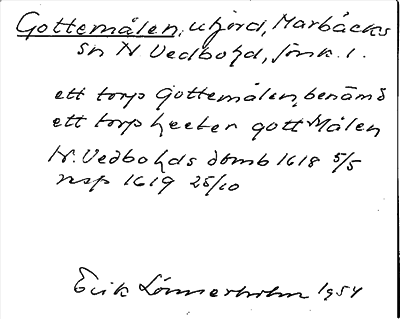 Gottemålen, utjord, Marbäcks
sn N Vedbohd, Jönk. l.
ett torp Gottemålen, benämd
ett torp heeter gott Målen
N. Vedbohds domb 1618 5/5
resp 1619 25/10
Erik Lönnerholm 1954